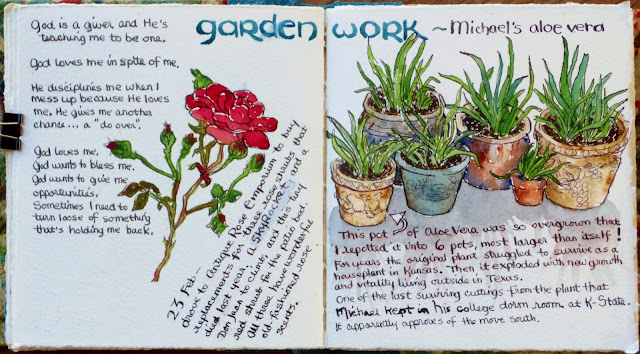 garden work ~ Michael's aloe vera
God is a giver, and He's
teaching me to be one.
God loves me in spite of me.
He disciplines me when I
mess up because He loves
me. He gives me another
chance... a "do over".
God loves me.
God wants to bless me.
God wants to give me
opportunities,
Sometimes I need to
turn loose of something
that's holding me back.
23 Feb -
drove to Antique Rose Emporium to buy
replacements for three rose shrubs that
died last year. A skyrocket and a
Don Juan to climb, and this tidy
red shrub for the patio bed.
All three have wonderful
old-fashioned rose
scents.
This pot of Aloe Vera was so overgrown that
I repotted it into 6 pots, most larger than itself!
For years the original plant struggled to survive as a
houseplant in Kansas. Then it exploded with new growth
and vitality living outside in Texas.
One of the last surviving cuttings from the plant that
Michael kept in his college dorm room at K-State.
It apparently approves of the move south.